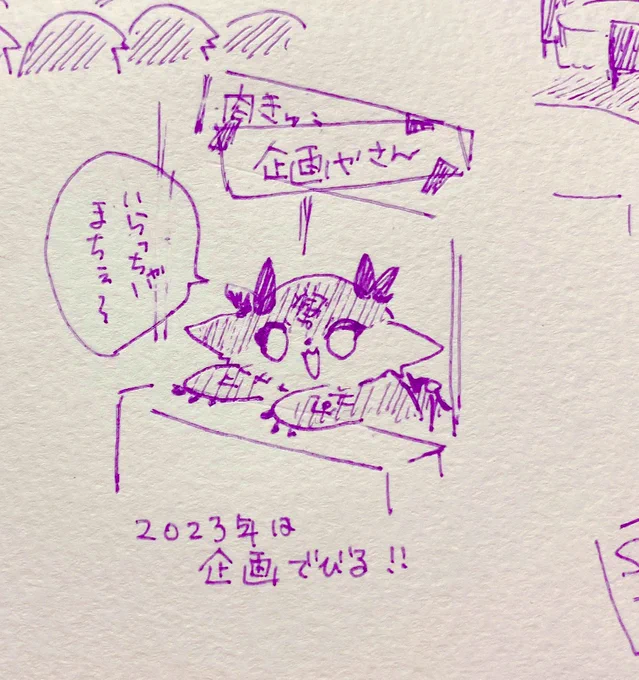 肉きゅう
企画やさん
いらっちゃい
まちぇ〜
2023年は
企画でびる!!